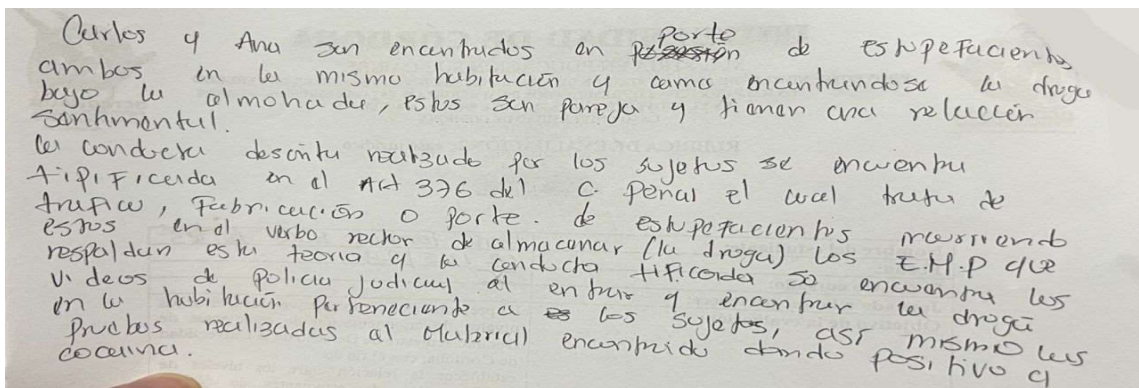 Carlos y Ana son encontrados en porte de estupefacientes
ambos en la misma habitación y cama encontrandose la droga
bajo la almohada, estos son pareja y tienen una relación
Sentimental.
La conducta descrita realizada por los sujetos se encuentra
tipificada en el Art 376 del C. Penal el cual trata de
trafico, Fabricación o Porte. de estupefacientes incurriendo
estos en el verbo rector de almacenar (la droga) Los E.M.P que
respaldan esta teoria y la conducta tificada se encuentra los
Videos de policia judicial al entrar y encontrar la droga
en la habitación perteneciente a los sujetos, así mismo las
Pruebas realizadas al Material encontrado dando positivo a
cocaina.